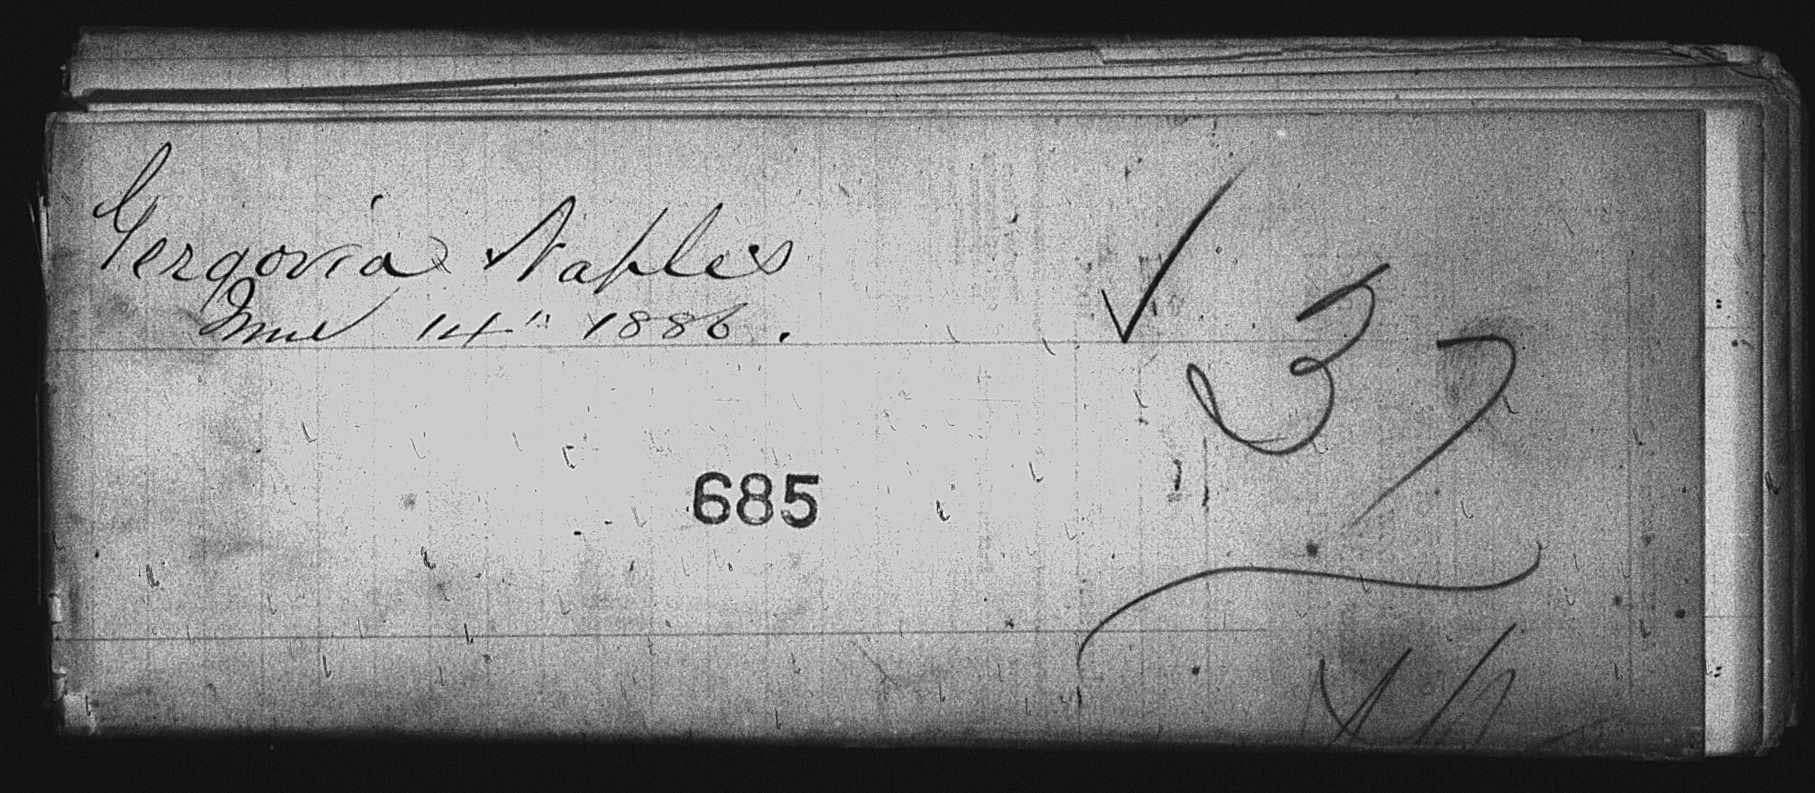 Gergovia Naples
June 14" 1886.
✓ 37
685